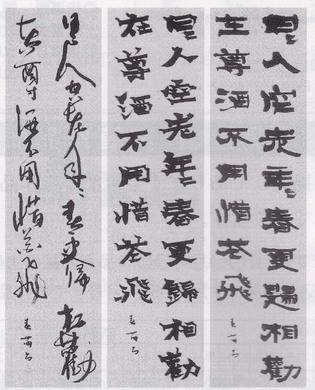 日〻人空老年〻春更歸相勸
在尊酒不用惜花飛
日〻人空老年〻春更歸相勸
在尊酒不用惜花飛
日〻人空老年〻春更歸相勸
在尊酒不用惜花飛